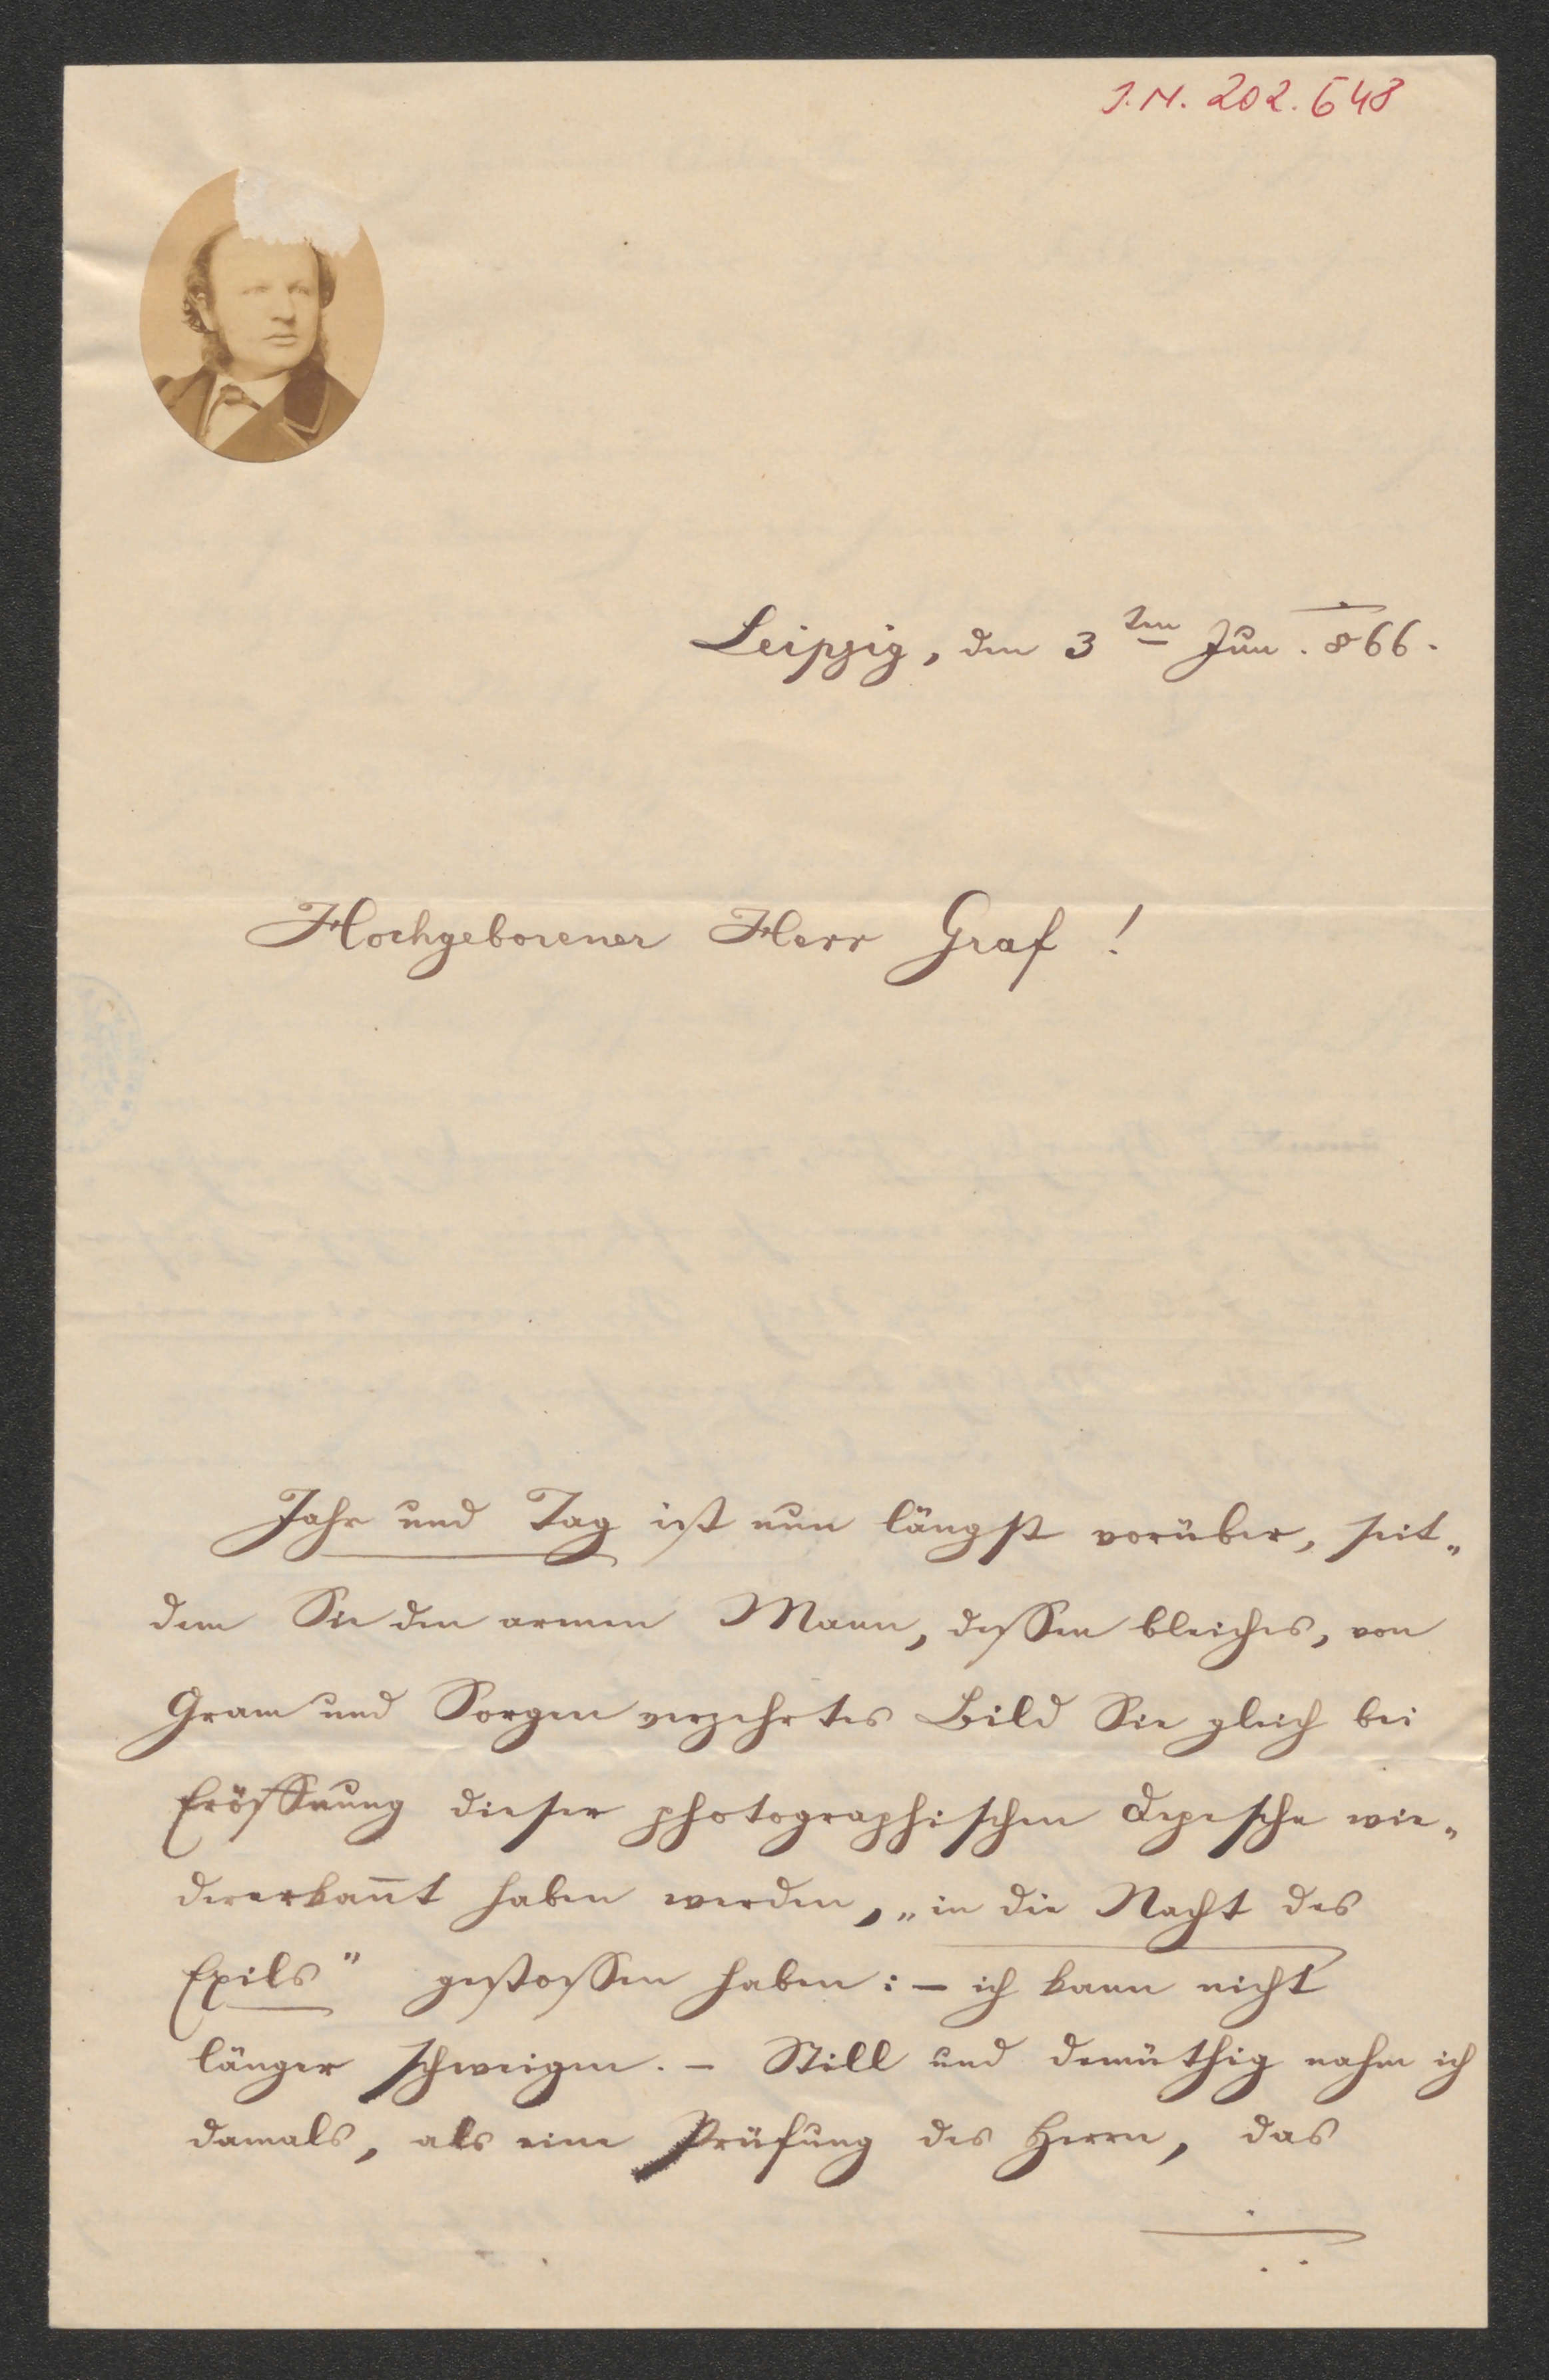 J.N. 202.648
Leipzig, den 3ten Jun. 866.
Hochgeborener Herr Graf!
Jahr und Tag ist nun längst vorüber, seit„
dem Sie den armen Mann, dessen bleiches, von
Gram und Sorgen verzehrtes Bild Sie gleich bei
Eröffnung dieser photographischen Depesche wie„
dererkan̄t haben werden, „in die Nacht des
Exils" gestossen haben: – ich kann nicht
länger schweigen. – Still und demüthig nahm ich
damals, als eine Prüfung des Herrn, das